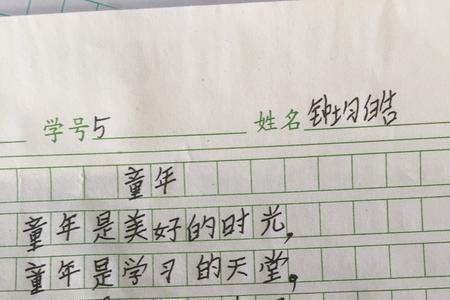 学号5 姓名钟均皓
童年
童年是美好的时光,
童年是学习的天堂。